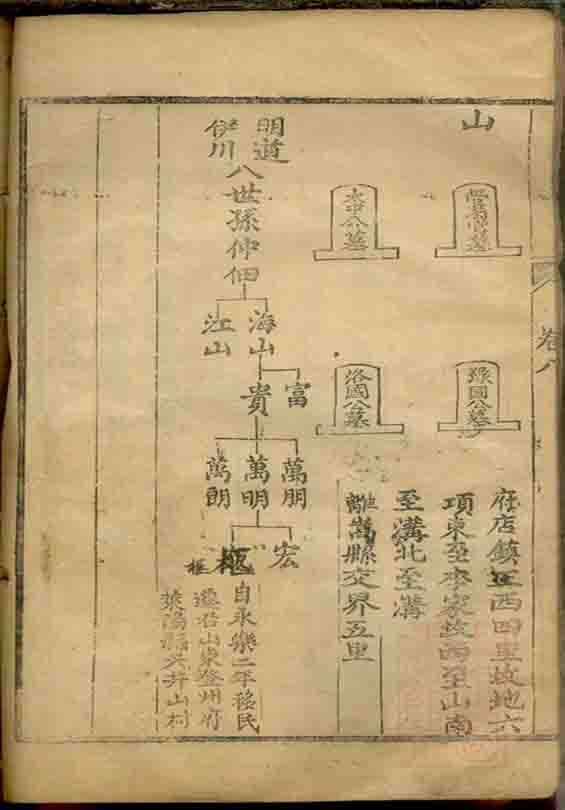 卷八
山
太中公墓
豫國公墓
洛國公墓
府店鎮正西四里坟地六
項東至李家坟西至山南
至溝北至溝
離嵩縣交界五里
明道
伊川
八世孫仲佃
海山
江山
富
貴
萬朋
萬明
萬朗
宏
樞
自永樂二年移民
遷居山東登州府
萊陽縣大井山村